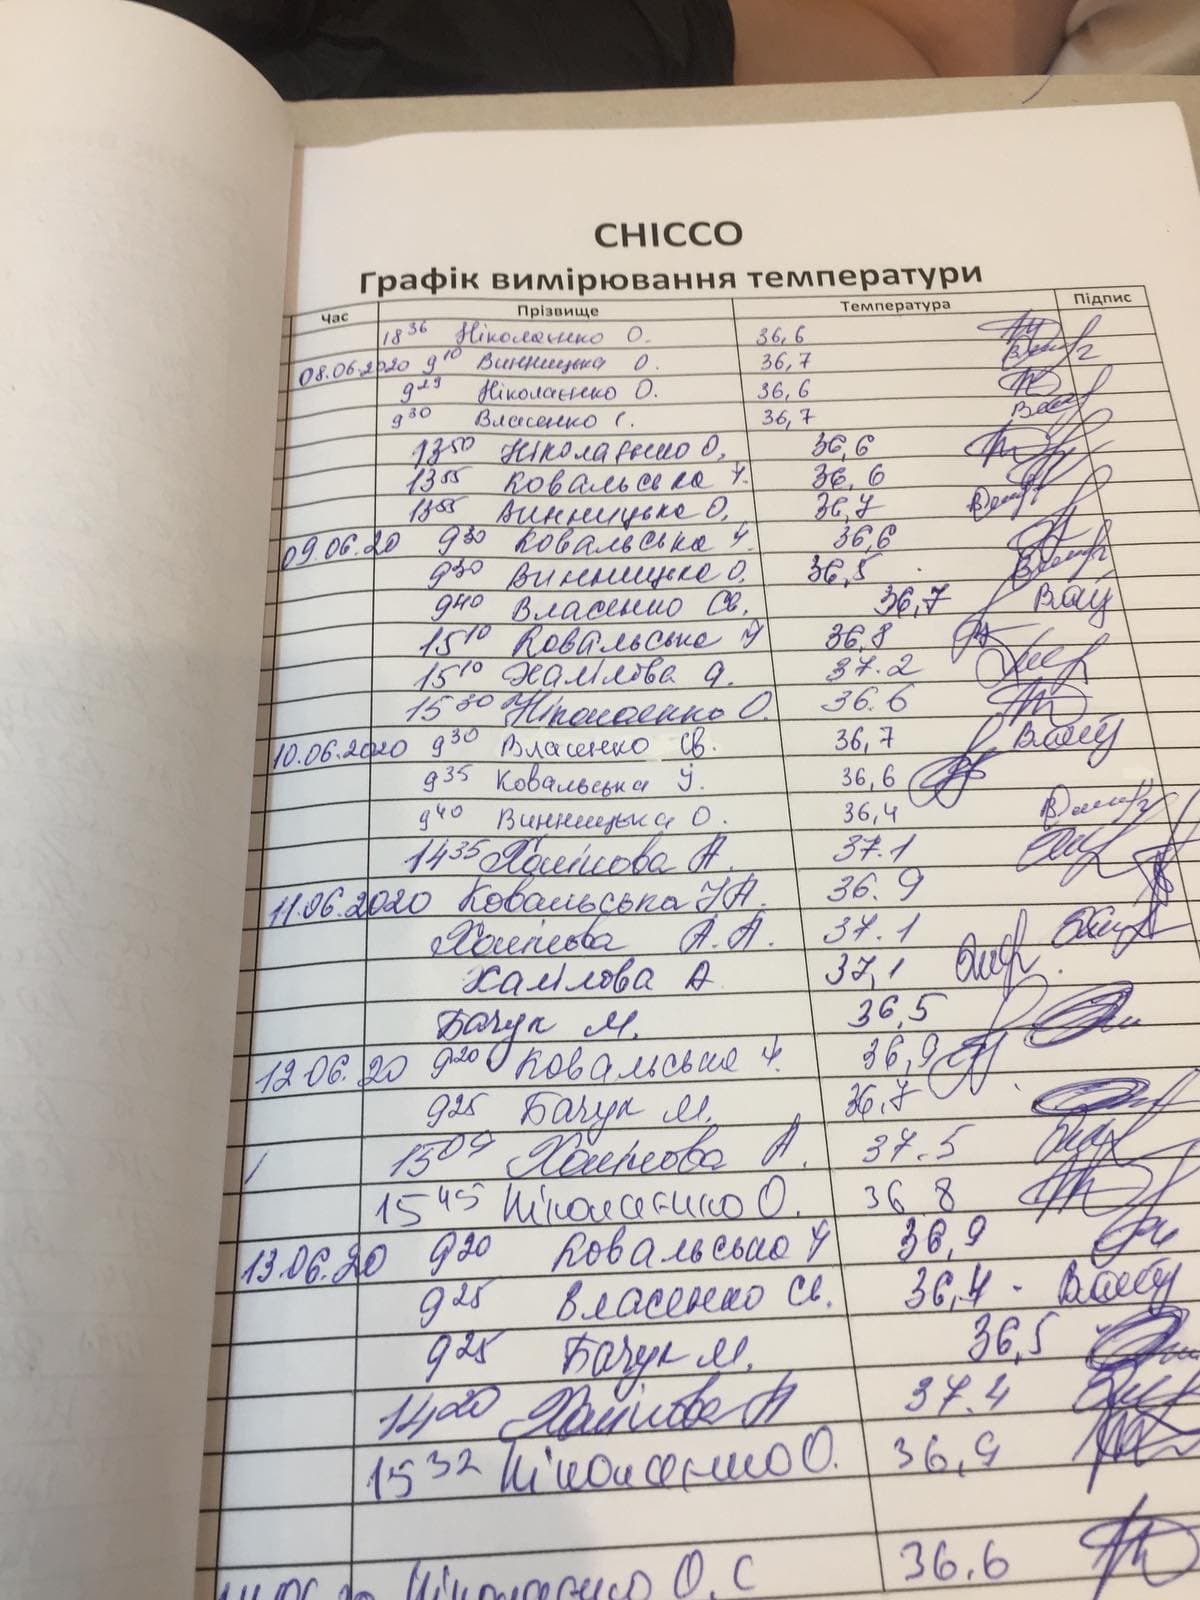 CHICCO
Графік вимірювання температури
Час Прізвище Температура Підпис
18 36 Ніколаєнко О. 36,6
08.06.2020 9 10 Винницька О. 36,7
9 29 Ніколаєнко О. 36,6
9 30 Власенко С. 36,7
13 50 Ніколаєнко О. 36,6
13 55 Ковальська У. 36,6
13 55 Винницька О. 36,7
09.06.20 9 30 Ковальська У. 36,6
9 30 Винницька О. 36,5
9 40 Власенко Св. 36,7
15 10 Ковальська У 36,8
15 10 Халілова А. 37.2
15 30 Ніколаєнко О. 36.6
10.06.2020 9 30 Власенко Св. 36,7
9 35 Ковальська У. 36,6
9 40 Винницька О. 36,4
14 35 Халілова А. 37.1
11.06.2020 Ковальська У.А. 36.9
Халілова А.А. 37.1
Халілова А 37,1
Бачук М. 36,5
12.06.20 9 20 Ковальська У. 36,9
9 25 Бачук М. 36,7
15 09 Халілова А. 37.5
15 45 Ніколаєнко О. 36.8
13.06.20 9 20 Ковальська У 36,9
9 25 Власенко Св. 36,4
9 25 Бачук М. 36,5
14 20 Халілова А 37.4
15 32 Ніколаєнко О. 36,9
Ніколаєнко О.С 36.6